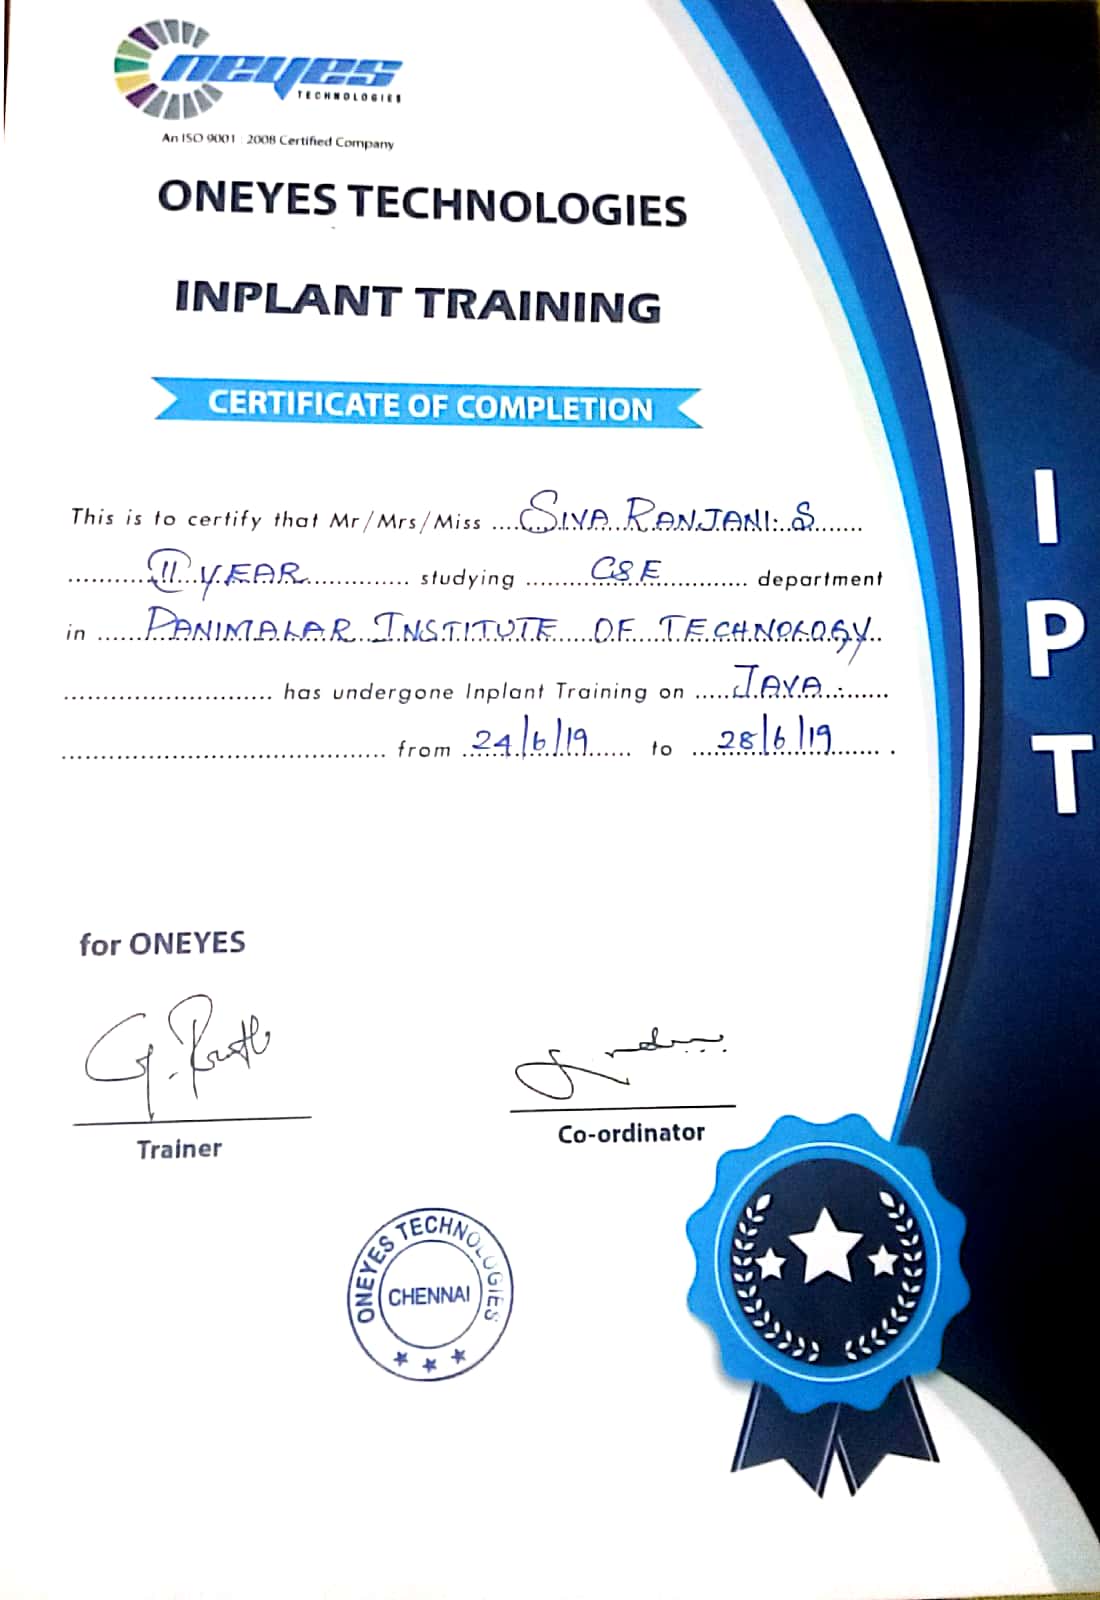 Oneyes
TECHNOLOGIES
An ISO 9001 : 2008 Certified Company
ONEYES TECHNOLOGIES
INPLANT TRAINING
CERTIFICATE OF COMPLETION
This is to certify that Mr/Mrs/Miss ....SIVA RANJANI. S.......
...........II YEAR.............. studying ..........CSE............ department
in ......PANIMALAR INSTITUTE OF TECHNOLOGY..
............................ has undergone Inplant Training on .....JAVA.......
........................................... from ..24/6/19...... to ...28/6/19....... .
I
P
T
for ONEYES
Trainer
Co-ordinator
ONEYES TECHNOLOGIES
CHENNAI